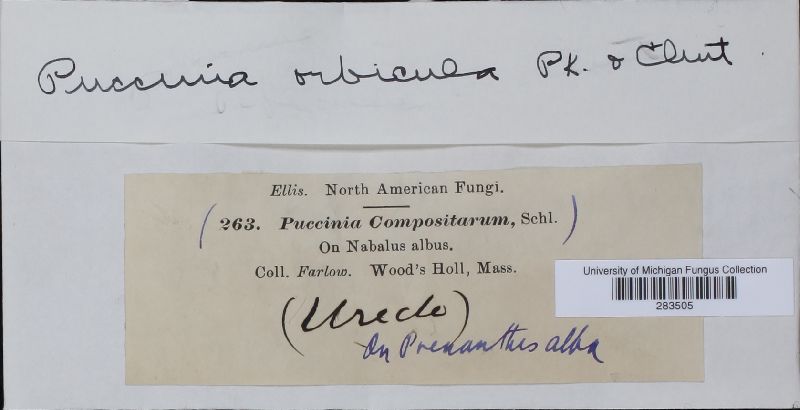 Puccinia orbicula Pk. & Clint.
Ellis. North American Fungi.
(263. Puccinia Compositarum, Schl.)
On Nabalus albus.
Coll. Farlow. Wood's Holl, Mass.
(Uredo)
On Prenanthes alba
University of Michigan Fungus Collection
283505